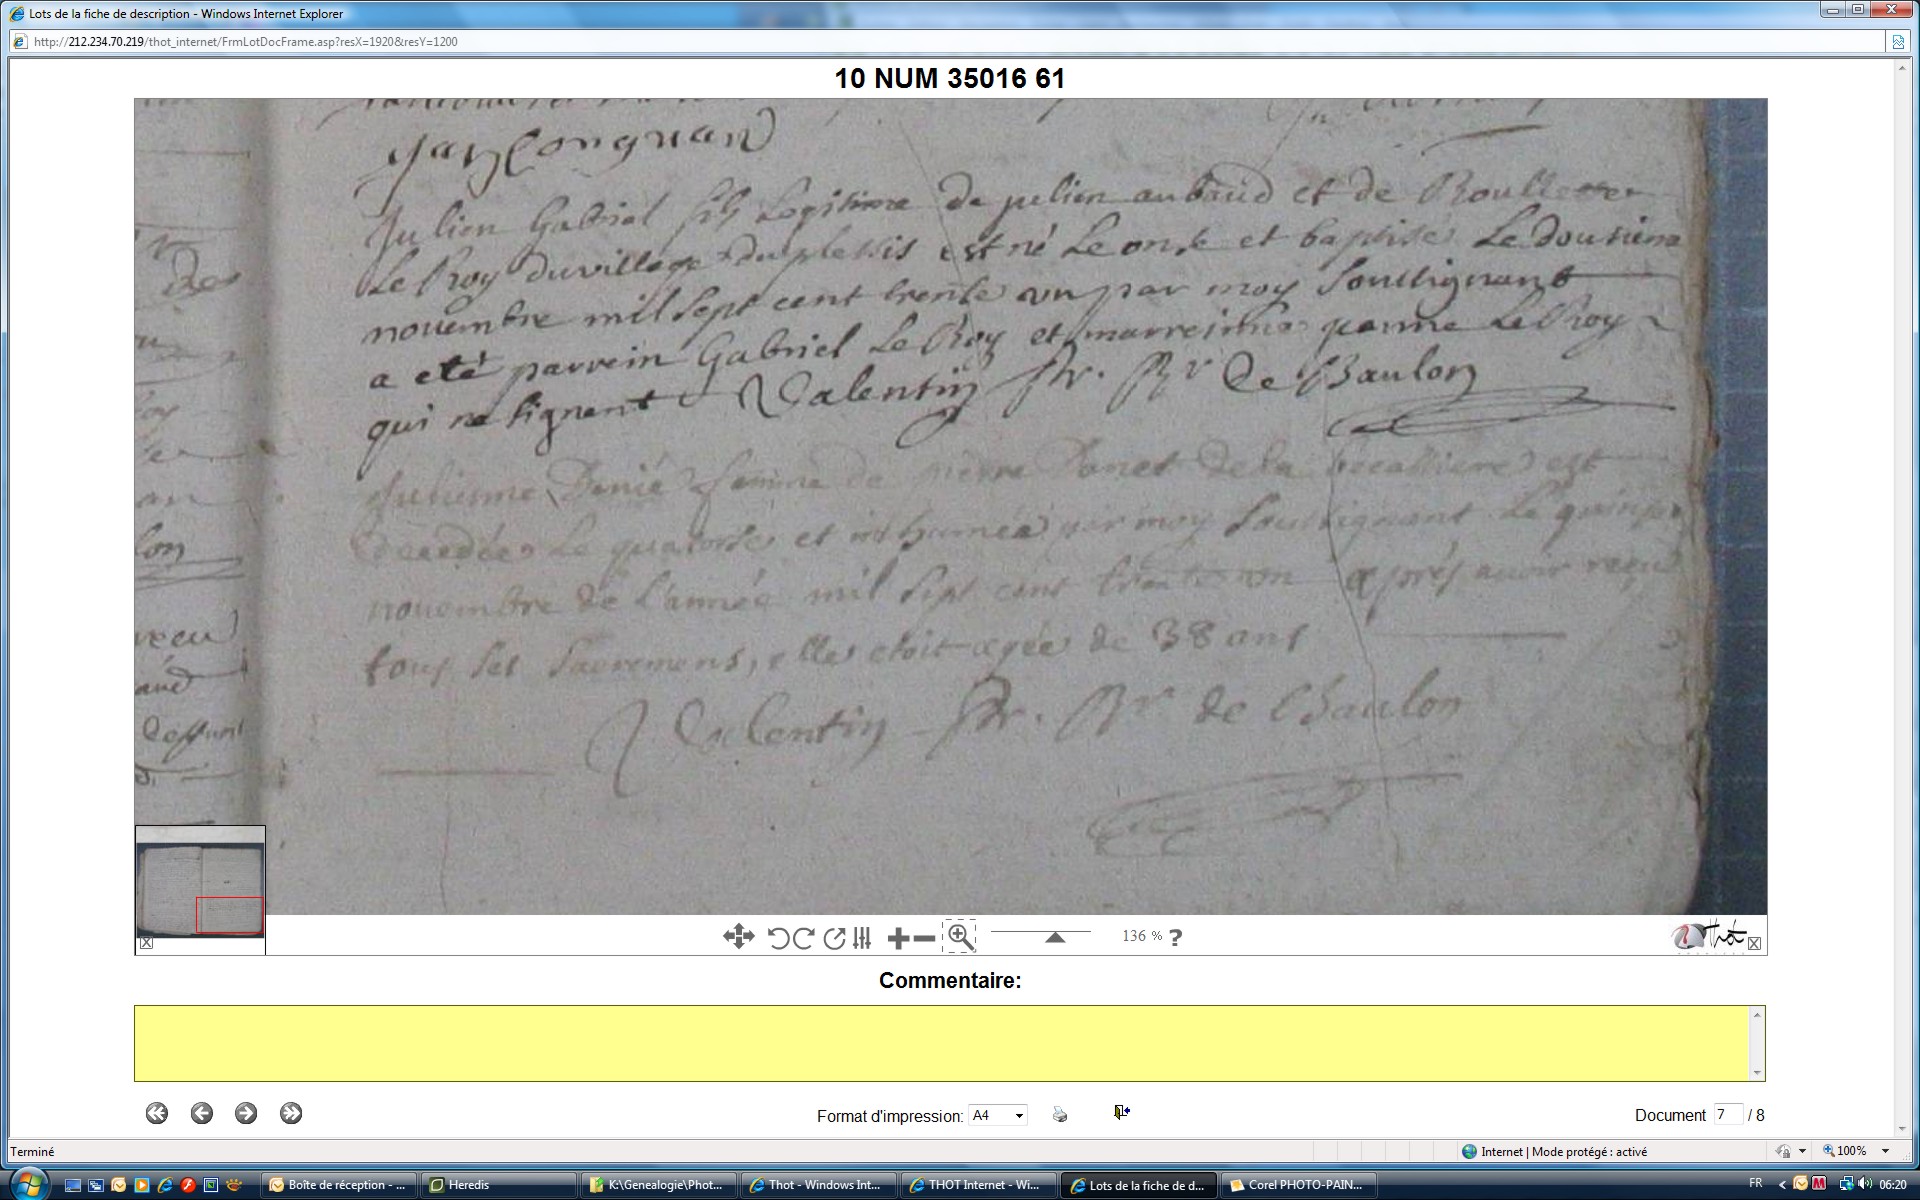 Lots de la fiche de description - Windows Internet Explorer
http://212.234.70.219/thot_internet/FrmLotDocFrame.asp?resX=1920&resY=1200
10 NUM 35016 61
Julien Gabriel fils Legitime de julien aubaud et de
Le Roy du village du plessis est né Le onze et baptisé Le
novembre mil sept cent trente un par moy Soussignant
a eté parrein Gabriel Le Roy et Le Roy
qui ne signent Valentin Str. Rr de Baulon
Julienne femme de pierre de La est
decedée Le quatorse et inhumée par moy Soussignant Le
novembre de L'année mil sept cent trente un après avoir reçu
tous ses sacremens, elle etoit agée de 38 ans
Valentin Str. Rr de Baulon
des
lon
136 % ?
Thot
Commentaire:
Format d'impression: A4
Document 7 / 8
Terminé
Internet | Mode protégé : activé
100%
Boîte de réception - ...
Heredis
K:\Genealogie\Phot...
Thot - Windows Int...
THOT Internet - Wi...
Lots de la fiche de d...
Corel PHOTO-PAIN...
FR
06:20